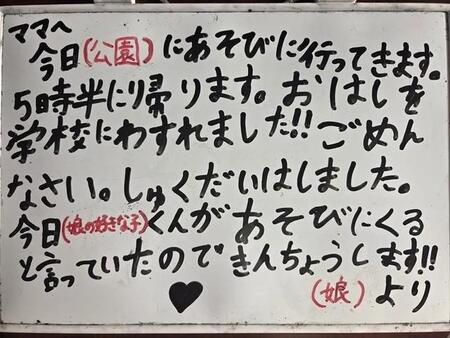 ママへ
今日(公園)にあそびに行ってきます。
5時半に帰ります。おはしを
学校にわすれました!!ごめん
なさい。しゅくだいはしました。
今日(娘の好きな子)くんがあそびにくる
と言っていたのできんちょうします!!
(娘)より